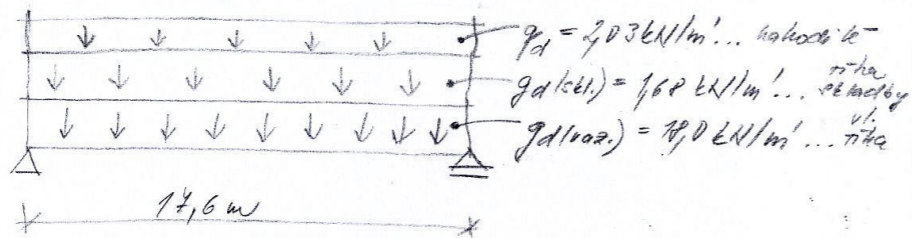 qd = 2,03 kN/m' ... nahodilé
gd (skl.) = 1,68 kN/m' ... tíha skladby
gd (vaz.) = 18,0 kN/m' ... vl. tíha
17,6 m